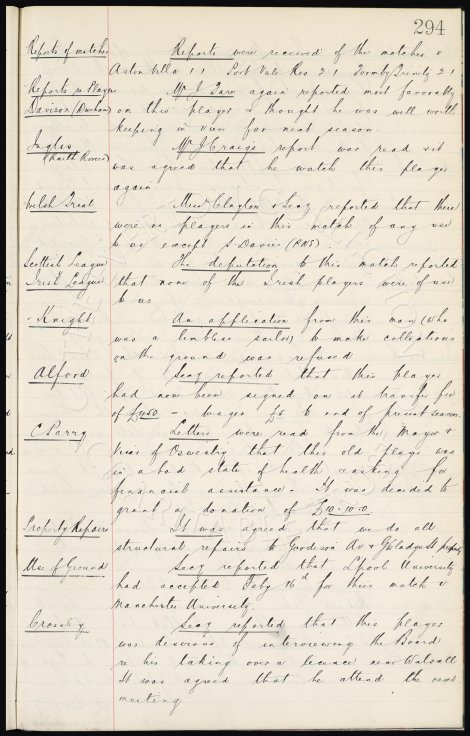 294
Reports of matches Reports were received of the matches v
Aston Villa 1.1 Port Vale Res 2.1 Formby Trinity 2.1
Reports re Players Mr J. Tare again reported most favorably
Davison (Durham) on this player & thought he was well worth
keeping in view for next season.
Inglis Mr J Craig's report was read & it
(Raith Rovers) was agreed that he watch this player
again
Welsh Trial Messrs Clayton & Secy reported that there
were no players in this match of any use
to us except S Davies (PNE)
Scottish League The deputation to this match reported
Irish League that none of the Irish players were of use
to us
Knight An application from this man (who
was a limbless sailor) to make collections
on the ground was refused
Alford Secy reported that this player
had now been signed on at transfer fee
of £1450 - wages £5 to end of present season.
C Parry Letters were read from the Mayor &
Vicar of Oswestry that this old player was
in a bad state of health & asking for
financial assistance - It was decided to
grant a donation of £10-10-0
Property Repairs It was agreed that we do all
structural repairs to Goodison Av & Gwladys St property
Use of Ground Secy reported that Lpool University
had accepted Feby 16th for their match v
Manchester University.
Crossley Secy reported that this player
was desirous of interviewing the Board
re his taking over a licence near Walsall
It was agreed that he attend the next
meeting